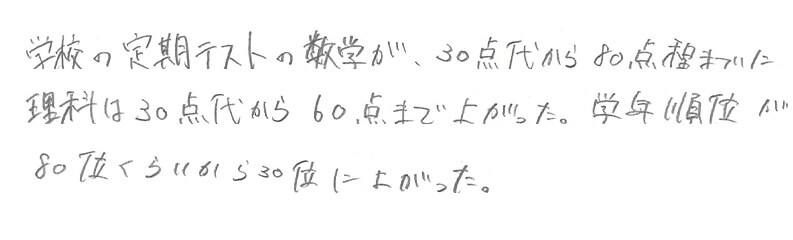 学校の定期テストの数学が、30点代から80点程までに
理科は30点代から60点まで上がった。学年順位が
80位くらいから30位に上がった。